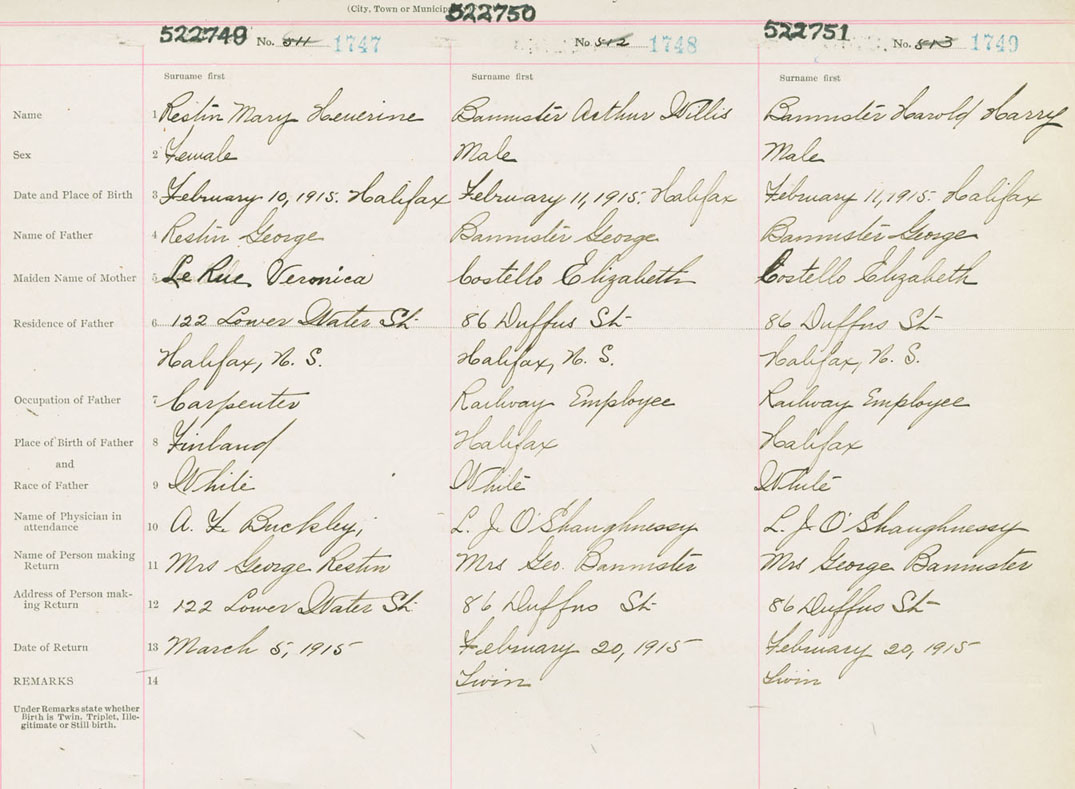 (City, Town or Municip
522749 No. 511 1747
522750 No. 512 1748
522751 No. 513 1749
Surname first Surname first Surname first
Name 1 Restin Mary Heverine Bannister Arthur Willis Bannister Harold Harry
Sex 2 Female Male Male
Date and Place of Birth 3 February 10, 1915. Halifax February 11, 1915. Halifax February 11, 1915. Halifax
Name of Father 4 Restin George Bannister George Bannister George
Maiden Name of Mother 5 Le Rue Veronica Costello Elizabeth Costello Elizabeth
Residence of Father 6 122 Lower Water St. 86 Duffus St 86 Duffus St
Halifax, N. S. Halifax, N. S. Halifax, N. S.
Occupation of Father 7 Carpenter Railway Employee Railway Employee
Place of Birth of Father 8 Finland Halifax Halifax
and
Race of Father 9 White White White
Name of Physician in
attendance 10 A. F. Buckley, L. J. O'Shaughnessy L. J. O'Shaughnessy
Name of Person making
Return 11 Mrs George Restin Mrs Geo. Bannister Mrs George Bannister
Address of Person mak-
ing Return 12 122 Lower Water St. 86 Duffus St 86 Duffus St
Date of Return 13 March 5, 1915 February 20, 1915 February 20, 1915
REMARKS 14 Twin Twin
Under Remarks state whether
Birth is Twin, Triplet, Ille-
gitimate or Still birth.